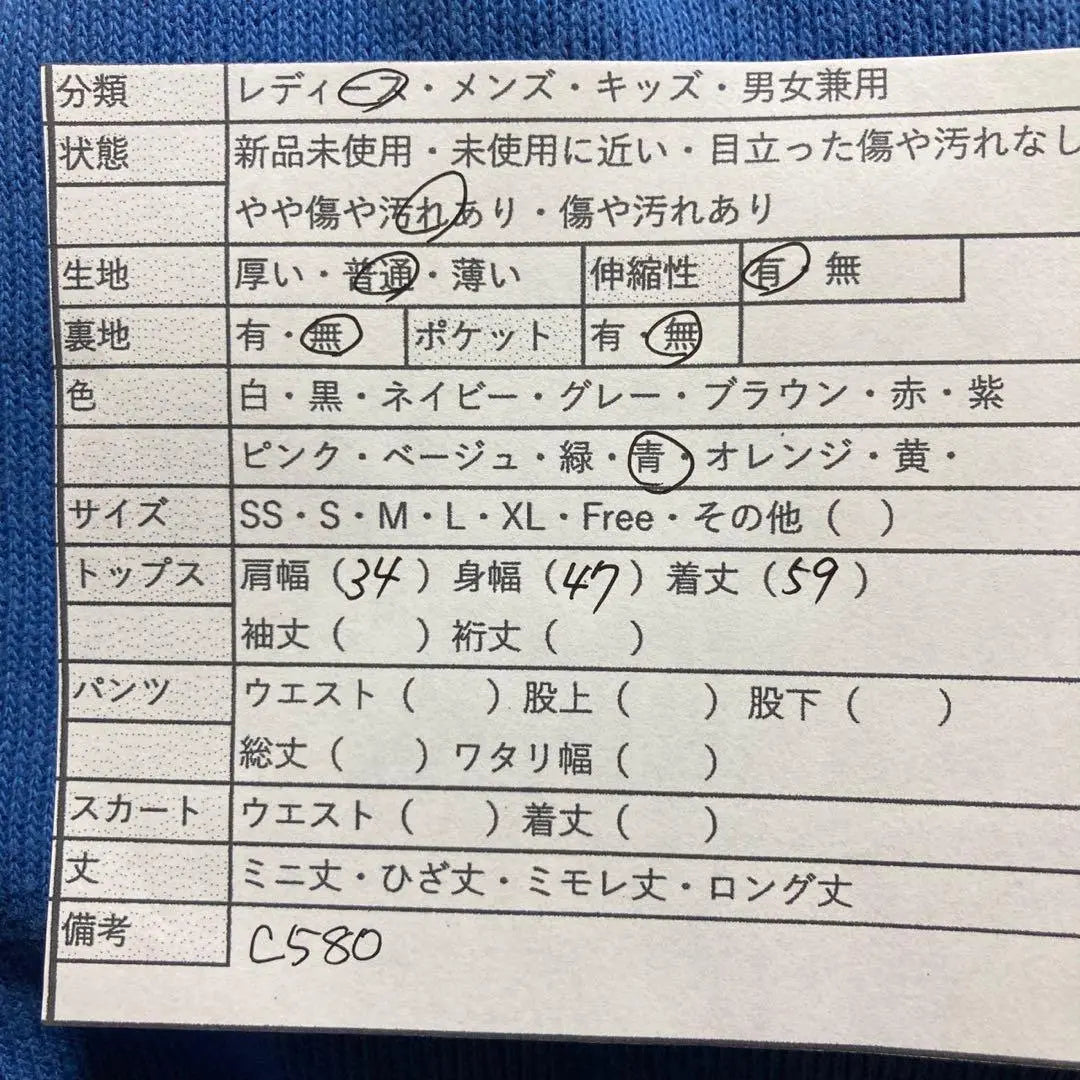 分類 レディース・メンズ・キッズ・男女兼用
状態 新品未使用・未使用に近い・目立った傷や汚れなし
やや傷や汚れあり・傷や汚れあり
生地 厚い・普通・薄い 伸縮性 有・無
裏地 有・無 ポケット 有・無
色 白・黒・ネイビー・グレー・ブラウン・赤・紫
ピンク・ベージュ・緑・青・オレンジ・黄・
サイズ SS・S・M・L・XL・Free・その他（ ）
トップス 肩幅（34）身幅（47）着丈（59）
袖丈（ ）裄丈（ ）
パンツ ウエスト（ ）股上（ ）股下（ ）
総丈（ ）ワタリ幅（ ）
スカート ウエスト（ ）着丈（ ）
丈 ミニ丈・ひざ丈・ミモレ丈・ロング丈
備考 C580